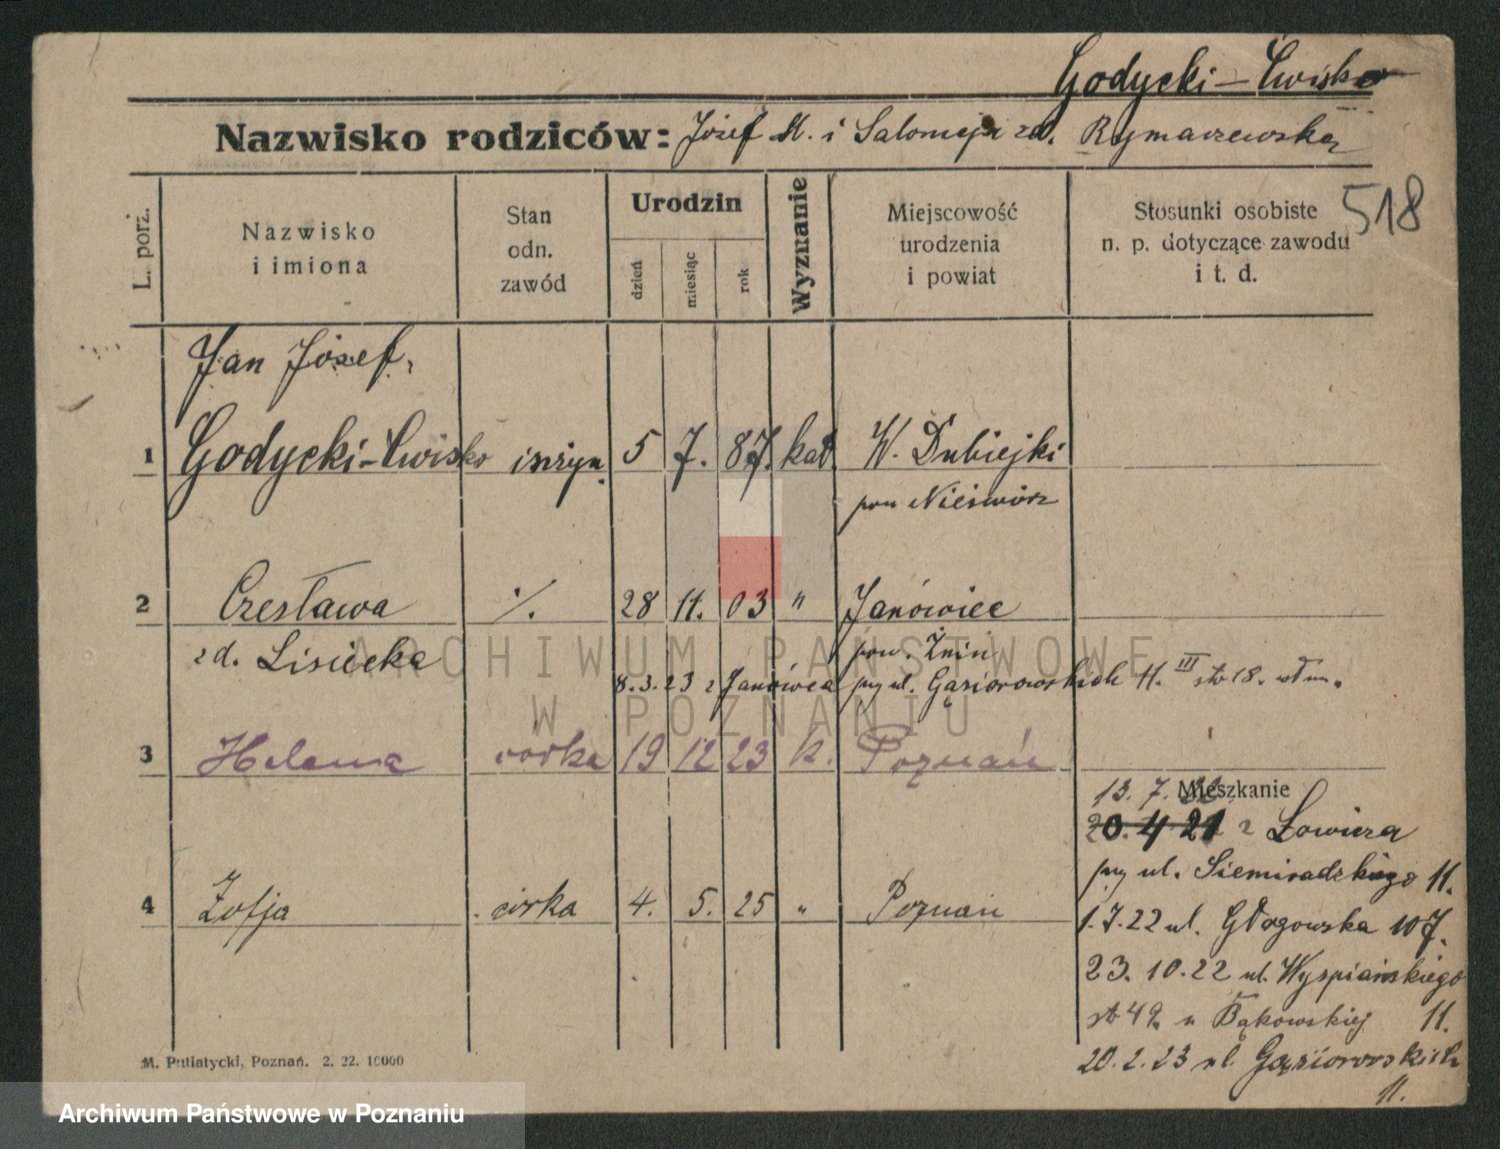 Godycki-Ćwisko
Nazwisko rodziców: Józef M. i Salomeja zd. Rymaszewska
518
L. porz.
Nazwisko i imiona
Stan odn. zawód
Urodzin
dzień
miesiąc
rok
Wyznanie
Miejscowość urodzenia i powiat
Stosunki osobiste n. p. dotyczące zawodu i t. d.
Jan Józef
1 Godycki-Ćwisko inżyn. 5 7. 87. kat W. Dubiejki
pow Nieśwież
2 Czesława ·/. 28 11. 03 " Janówiec
zd. Lisiecka pow. Żnin
8.3.23 z Janówca przy ul. Gąsiorowskich 11. III
3 Helena córka 19 12 23 k. Poznań
Mieszkanie
13. 7.
20.4 21 z Łowicza
przy ul. Siemiradzkiego 11.
4 Zofja córka 4. 5. 25 " Poznań
1.7.22 ul. Głogowska 107.
23. 10. 22 ul. Wyspiańskiego
u Bąkowskiej 11.
20.2.23 ul. Gąsiorowskich
11.
M. Putiatycki, Poznań. 2. 22. 10000
ARCHIWUM PAŃSTWOWE
W POZNANIU
Archiwum Państwowe w Poznaniu